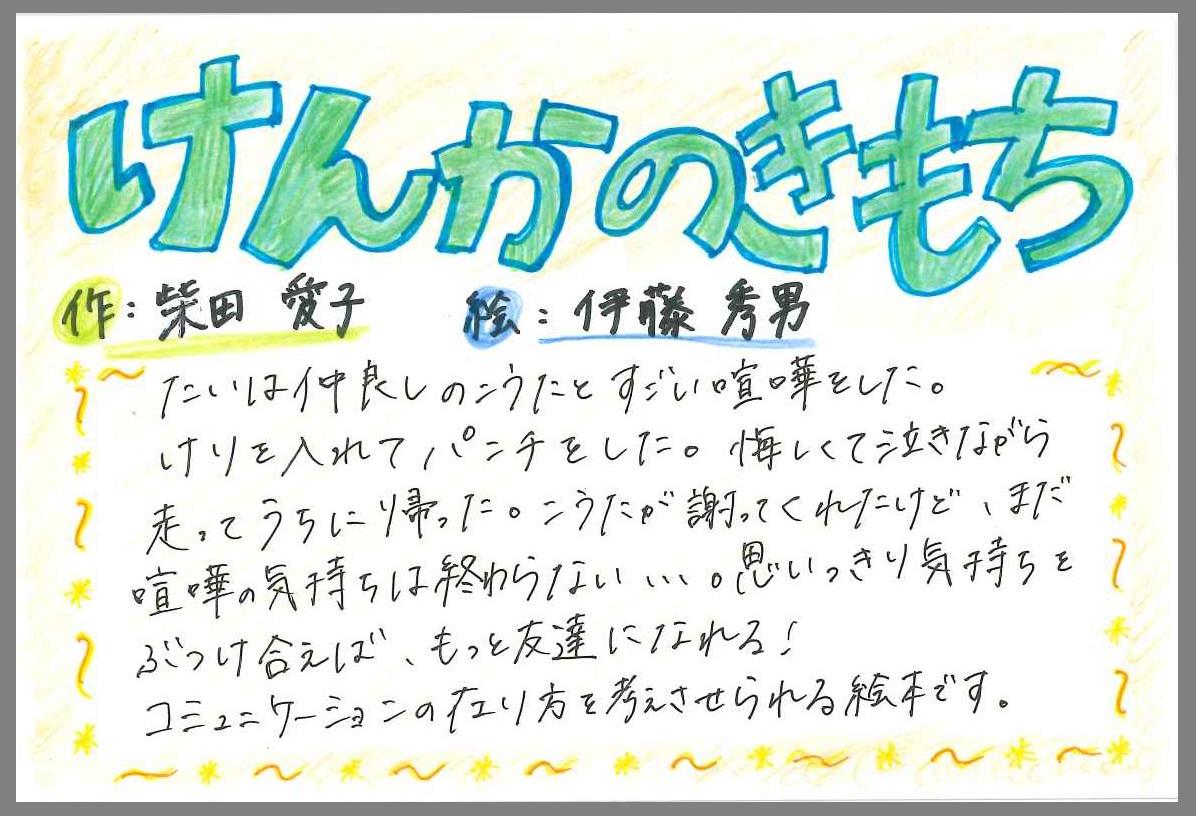 けんかのきもち
作：柴田 愛子 絵：伊藤 秀男
たいは仲良しのこうたとすごい喧嘩をした。
けりを入れてパンチをした。悔しくて泣きながら
走ってうちに帰った。こうたが謝ってくれたけど、まだ
喧嘩の気持ちは終わらない…。思いっきり気持ちを
ぶつけ合えば、もっと友達になれる！
コミュニケーションの在り方を考えさせられる絵本です。